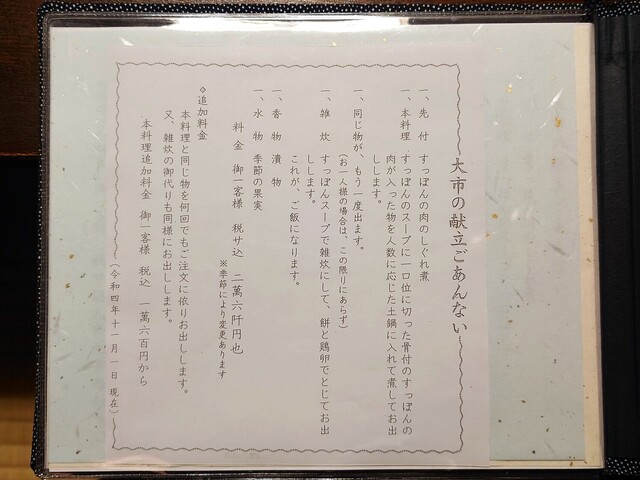 大市の献立ごあんない
一、先 付 すっぽんの肉のしぐれ煮
一、本料理 すっぽんのスープに一口位に切った骨付のすっぽんの
肉が入った物を人数に応じた土鍋に入れて煮してお出
しします。
一、同じ物が、もう一度出ます。
(お一人様の場合は、この限りにあらず)
一、雑 炊 すっぽんスープで雑炊にして、餅と鶏卵でとじてお出
しします。
これが、ご飯になります。
一、香 物 漬 物
一、水 物 季節の果実
料 金 御一客様 税サ込 二萬六阡円也
※季節により変更あります
◇追加料金
本料理と同じ物を何回でもご注文に依りお出しします。
又、雑炊の御代りも同様にお出しします。
本料理追加料金 御一客様 税込 一萬六百円から
(令和四年十一月一日 現在)